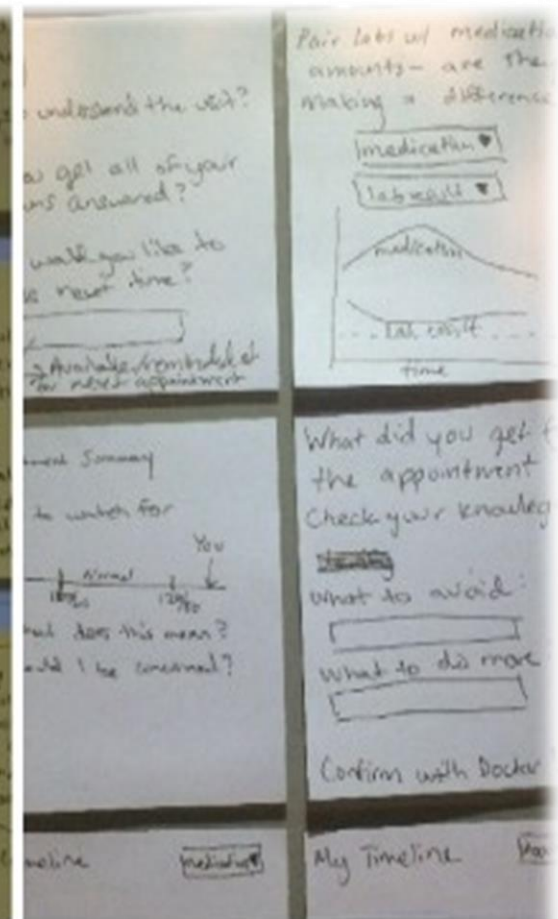 understand the visit?
get all of your
answered?
would you like to
next time?
Available/reminded at
for next appointment
Pair labs w/ medicatio
amounts - are the
making a difference
medication
lab result
medication
lab result
time
Summary
to watch for
You
Normal
120/80
does this mean?
I be concerned?
What did you get f
the appointment
Check your knowledg
What to avoid:
What to do more
Confirm with Doctor
meline
medication
My Timeline